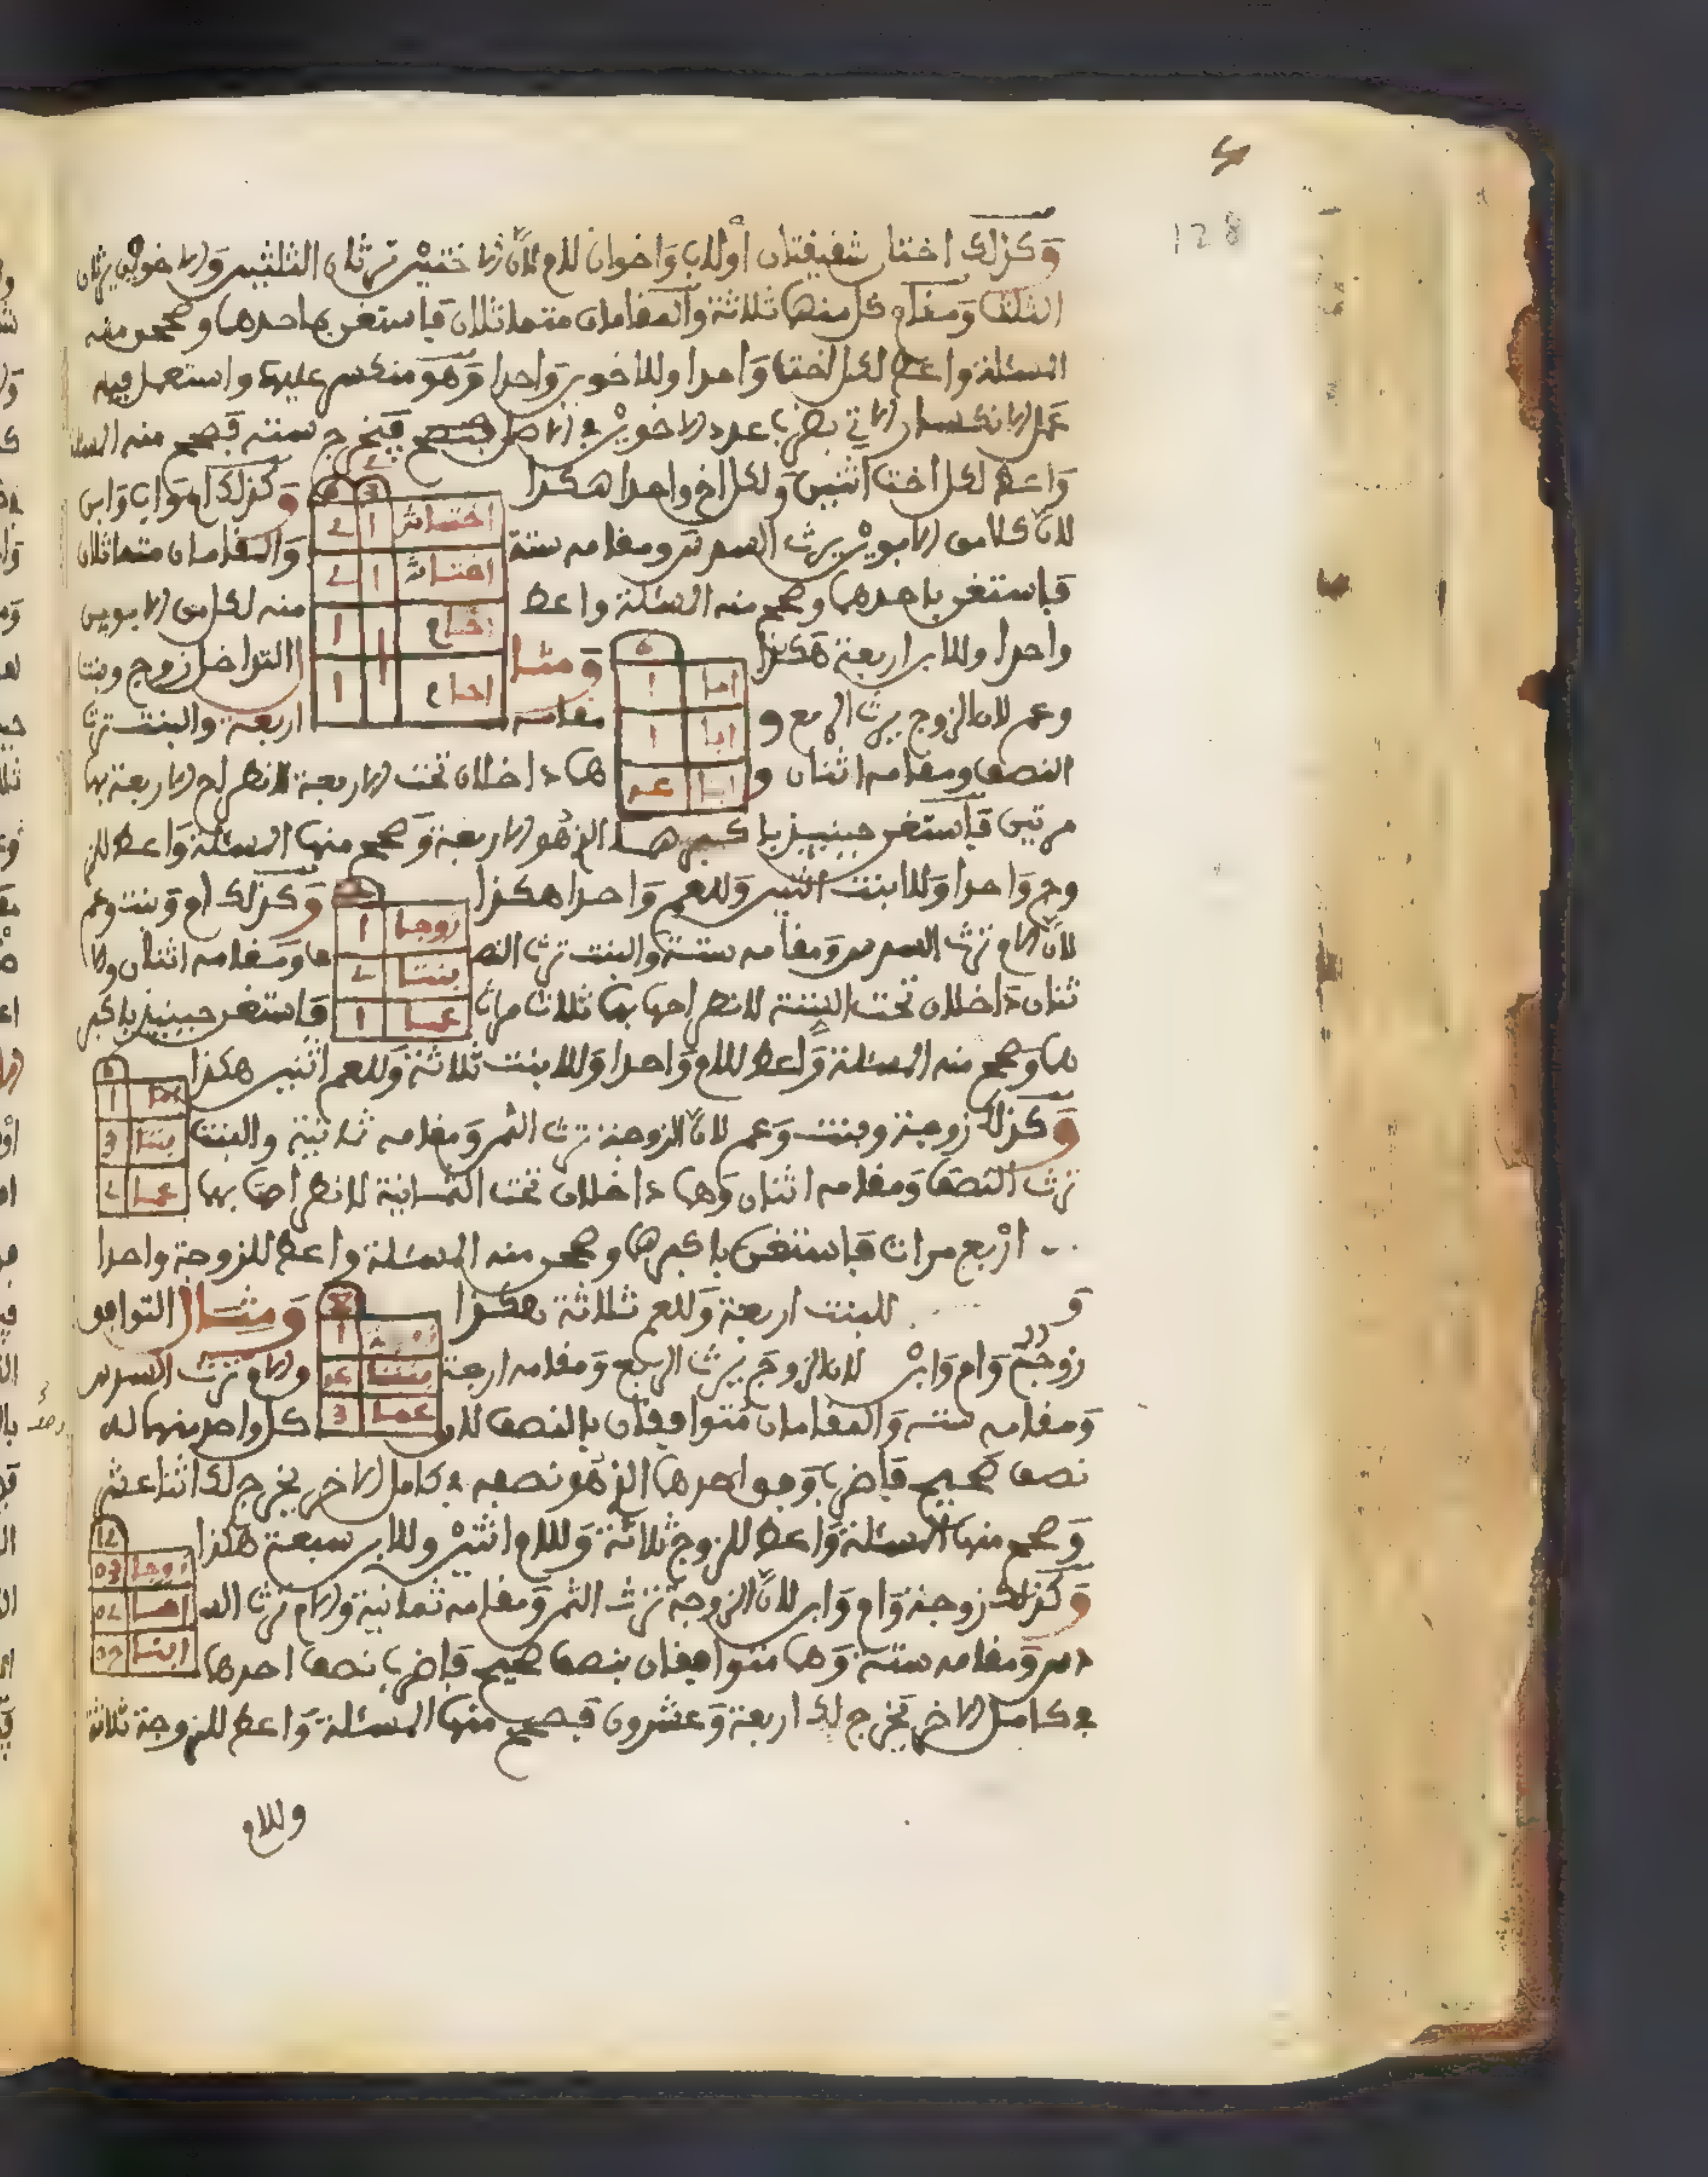 128
وكذلك اختان شقيقتان أو لاب واخوان للام لأن الاختين ترثان الثلثين والاخوين يرثان
الثلث ومقام كل منهما ثلاثة والمقامان متماثلان فاستغن باحدهما وصحح منه
المسئلة واعط لكل اخت واحدا وللاخوين واحدا وهو منكسر عليهما واستعمل فيه
عمل الانكسار الاتي بضرب عدد الاخوين في الاصل فيخرج ستة فصح منه المسئلة
واعط لكل اخت اثنين ولكل اخ واحدا هكذا وكذلك ام واب وابن
لأن كلا من الابوين يرث السدس ومقامه ستة والمقامان متماثلان
فاستغن باحدهما وصحح منه المسئلة واعط منه لكل من الابوين
واحدا وللابن اربعة هكذا ومثال التداخل زوج وبنت
وعم لان الزوج يرث الربع و مقامه اربعة والبنت ترث
النصف ومقامه اثنان و هما داخلان تحت الاربعة لانطراح الاربعة بهما
مرتين فاستغن حينئذ باكبرهما الذي هو الاربعة وصحح منها المسئلة واعط للز
وج واحدا وللابنت اثنين وللعم واحدا هكذا وكذلك ام وبنت وعم
لأن الام ترث السدس ومقامه ستة والبنت ترث النصف ومقامه اثنان والا
ثنان داخلان تحت الستة لانطراحها بهما ثلاث مرات فاستغن حينئذ باكبر
هما وصحح منه المسئلة واعط للام واحدا وللابنت ثلاثة وللعم اثنين هكذا
وكذلك زوجة وبنت وعم لأن الزوجة ترث الثمن ومقامه ثمانية والبنت
ترث النصف ومقامه اثنان وهما داخلان تحت الثمانية لانطراحها بهما
اربع مرات فاستغن باكبرهما وصحح منه المسئلة واعط للزوجة واحدا
و للبنت اربعة وللعم ثلاثة هكذا ومثال التوافق
زوج وام وابن لان الزوج يرث الربع ومقامه اربعة والام ترث السدس
ومقامه ستة والمقامان متوافقان بالنصف لان كل واحد منهما له
نصف صحيح فاضرب وفق احدهما الذي هو نصفه في كامل الاخر يخرج لك اثنا عشر
وصحح منها المسئلة واعط للزوج ثلاثة وللام اثنين وللابن سبعة هكذا
وكذلك زوجة وام وابن لأن الزوجة ترث الثمن ومقامه ثمانية والام ترث الس
دس ومقامه ستة وهما متوافقان بنصف صحيح فاضرب نصف احدهما
في كامل الاخر يخرج لك اربعة وعشرون فصحح منها المسئلة واعط للزوجة ثلاثة
وللام